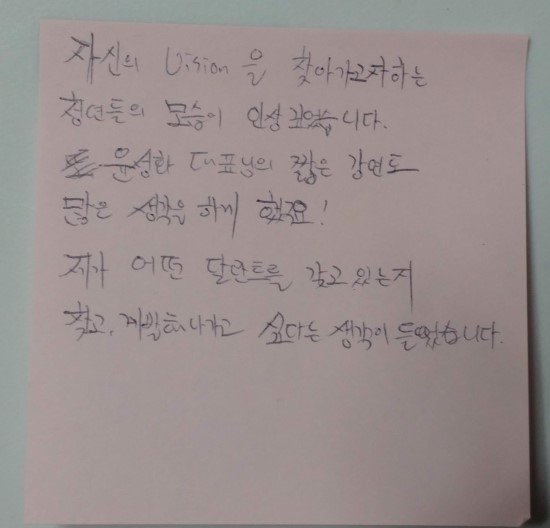 자신의 Vision 을 찾아가고자하는
청년들의 모습이 인상 깊었습니다.
윤성화 대표님의 짧은 강연도
많은 생각을 하게 했죠!
제가 어떤 달란트를 갖고 있는지
찾고, 개발해나가고 싶다는 생각이 들었습니다.